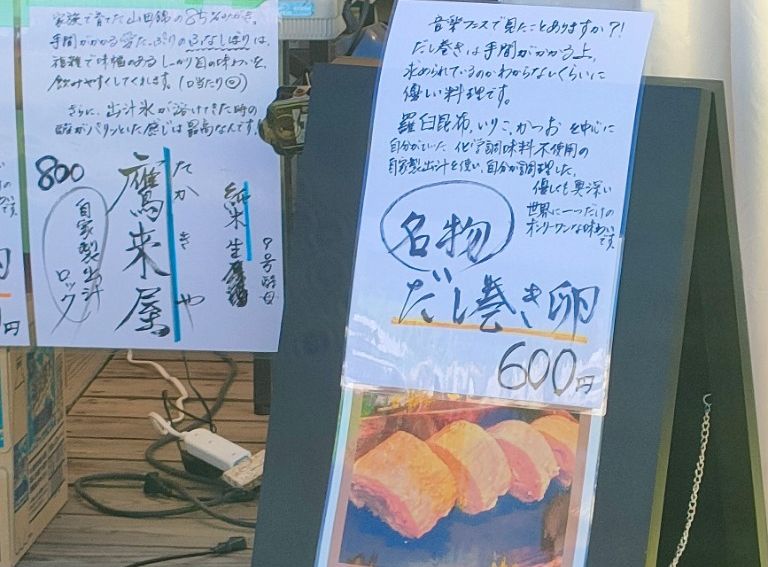 家族で育てた山田錦の85%のお米。
手間がかかる愛たっぷりの
複雑で味幅のあるしっかり目の味わいを、
飲みやすくしてくれます。
さらに、出汁氷が溶けてきた時の
最高なんです!
800
鷹来屋
たかきや
純米生原酒
9号酵母
自家製出汁
ロック
円
音楽フェスで見たことありますか?!
だし巻きは手間がかかる上、
求められているのかわからないくらいに
優しい料理です。
羅臼昆布、いりこ、かつおを中心に
化学調味料不使用の
自家製出汁を使い、自分が調理した、
優しくも奥深い
世界に一つだけの
オンリーワンな味わい
です。
名物
だし巻き卵
600円